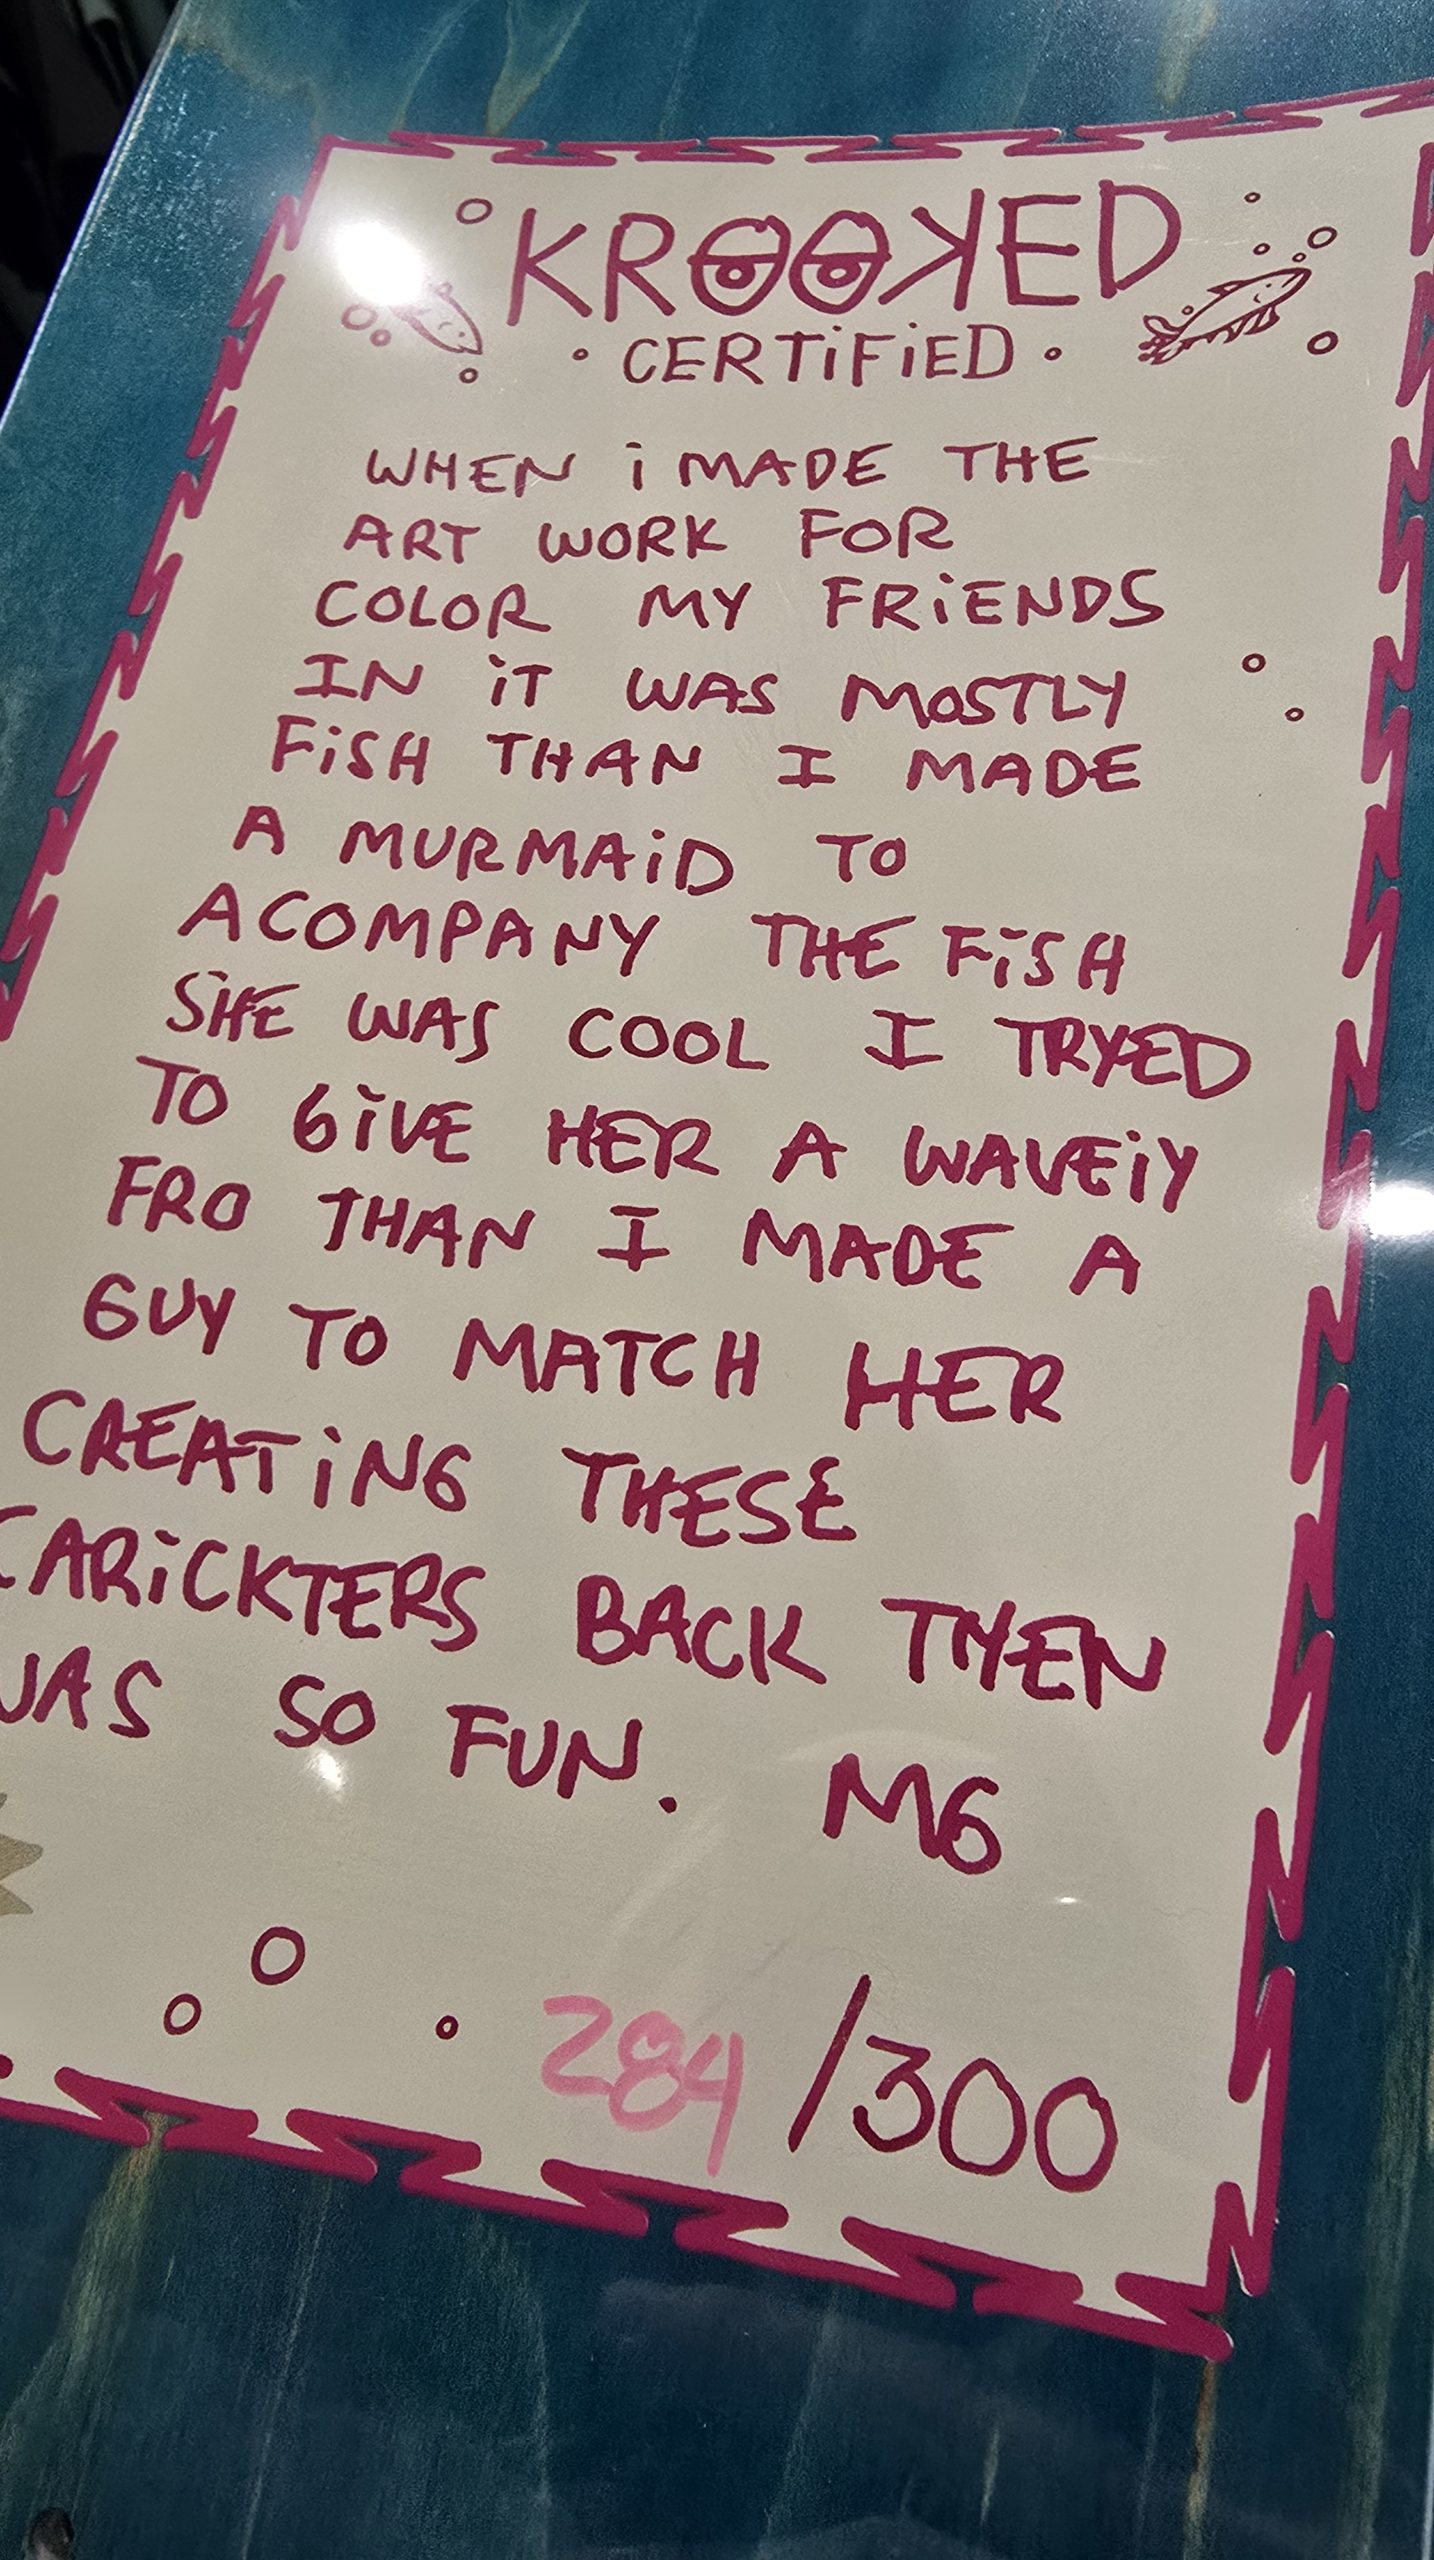 KROOKED
• CERTiFiED •
WHEN i MADE THE
ART WORK FOR
COLOR MY FRiENDS
IN iT WAS MOSTLY
FiSH THAN I MADE
A MURMAiD TO
ACOMPANY THE FiSH
SHE WAS COOL I TRYED
TO GiVE HER A WAVEiY
FRO THAN I MADE A
GUY TO MATCH HER
CREATiNG THESE
CARiCKTERS BACK THEN
WAS SO FUN. MG
284/300